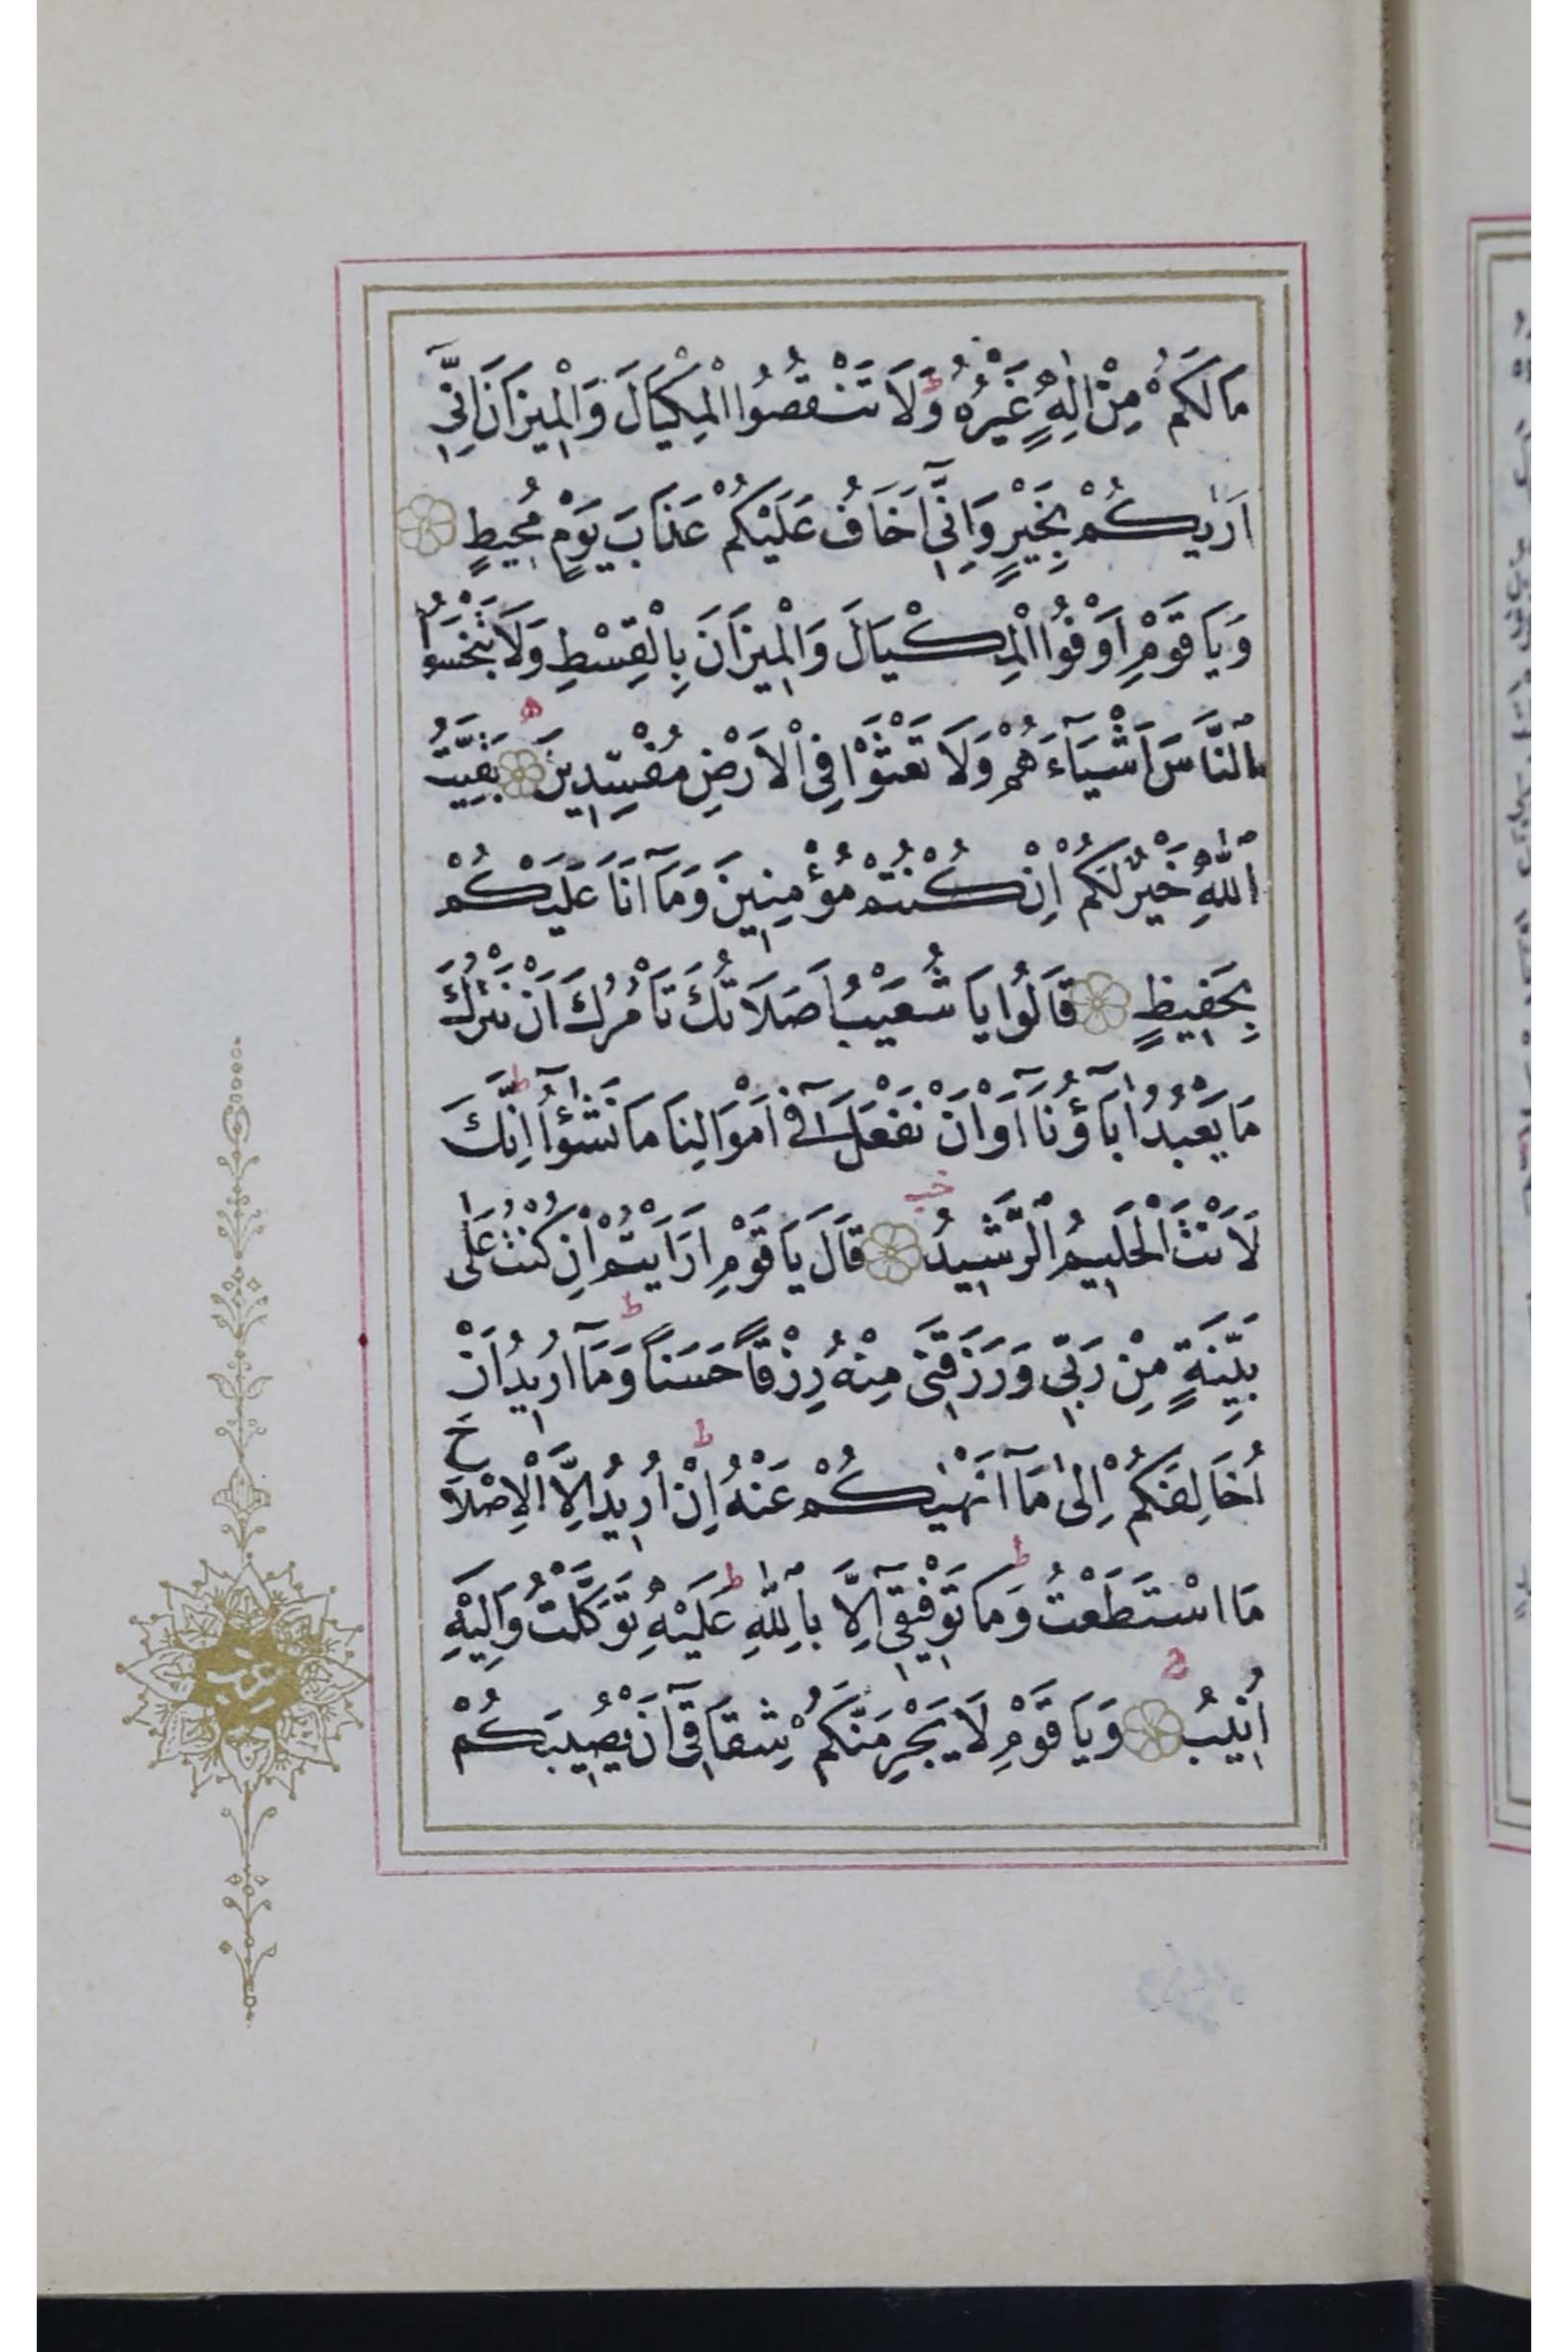 مَالَكُمْ مِنْ اِلٰهٍ غَيْرُهُ ط وَلَا تَنْقُصُوا الْمِكْيَالَ وَالْمِيزَانَ اِنّٖٓي
اَرٰيكُمْ بِخَيْرٍ وَاِنّٖٓي اَخَافُ عَلَيْكُمْ عَذَابَ يَوْمٍ مُحِيطٍ
وَيَا قَوْمِ اَوْفُوا الْمِكْيَالَ وَالْمِيزَانَ بِالْقِسْطِ وَلَا تَبْخَسُوا
النَّاسَ اَشْيَٓاءَهُمْ وَلَا تَعْثَوْا فِي الْاَرْضِ مُفْسِدِينَ ه بَقِيَّتُ
اللّٰهِ خَيْرٌ لَكُمْ اِنْ كُنْتُمْ مُؤْمِنِينَ وَمَٓا اَنَا۬ عَلَيْكُمْ
بِحَفِيظٍ قَالُوا يَا شُعَيْبُ اَصَلَاتُكَ تَأْمُرُكَ اَنْ نَتْرُكَ
مَا يَعْبُدُ اٰبَٓاؤُنَٓا اَوْ اَنْ نَفْعَلَ فٖٓي اَمْوَالِنَا مَا نَشٰٓؤُا ط اِنَّكَ
لَاَنْتَ الْحَلِيمُ الرَّشِيدُ خب قَالَ يَا قَوْمِ اَرَاَيْتُمْ اِنْ كُنْتُ عَلٰى
بَيِّنَةٍ مِنْ رَبِّي وَرَزَقَنِي مِنْهُ رِزْقًا حَسَنًا ط وَمَٓا اُرِيدُ اَنْ
اُخَالِفَكُمْ اِلٰى مَٓا اَنْهٰيكُمْ عَنْهُ ط اِنْ اُرِيدُ اِلَّا الْاِصْلَاحَ
مَا اسْتَطَعْتُ ط وَمَا تَوْفِيقٖٓي اِلَّا بِاللّٰهِ ط عَلَيْهِ تَوَكَّلْتُ وَاِلَيْهِ
اُنِيبُ وَيَا قَوْمِ لَا يَجْرِمَنَّكُمْ شِقَاقٖٓي اَنْ يُصِيبَكُمْ